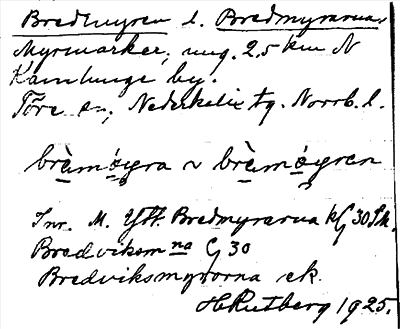 Bredmyren l. Bredmyrarna,
Myrmarker, ung. 2,5 km N
Kamlunge by.
Töre sn, Nederkalix tg. Norrb. l.
brèmøyra ~ brèmøyren
Inr. M. Ytt. Bredmyrarna kG 30
Bredviksm na G 30
Bredviksmyrorna ek.
H Rutberg 1925.